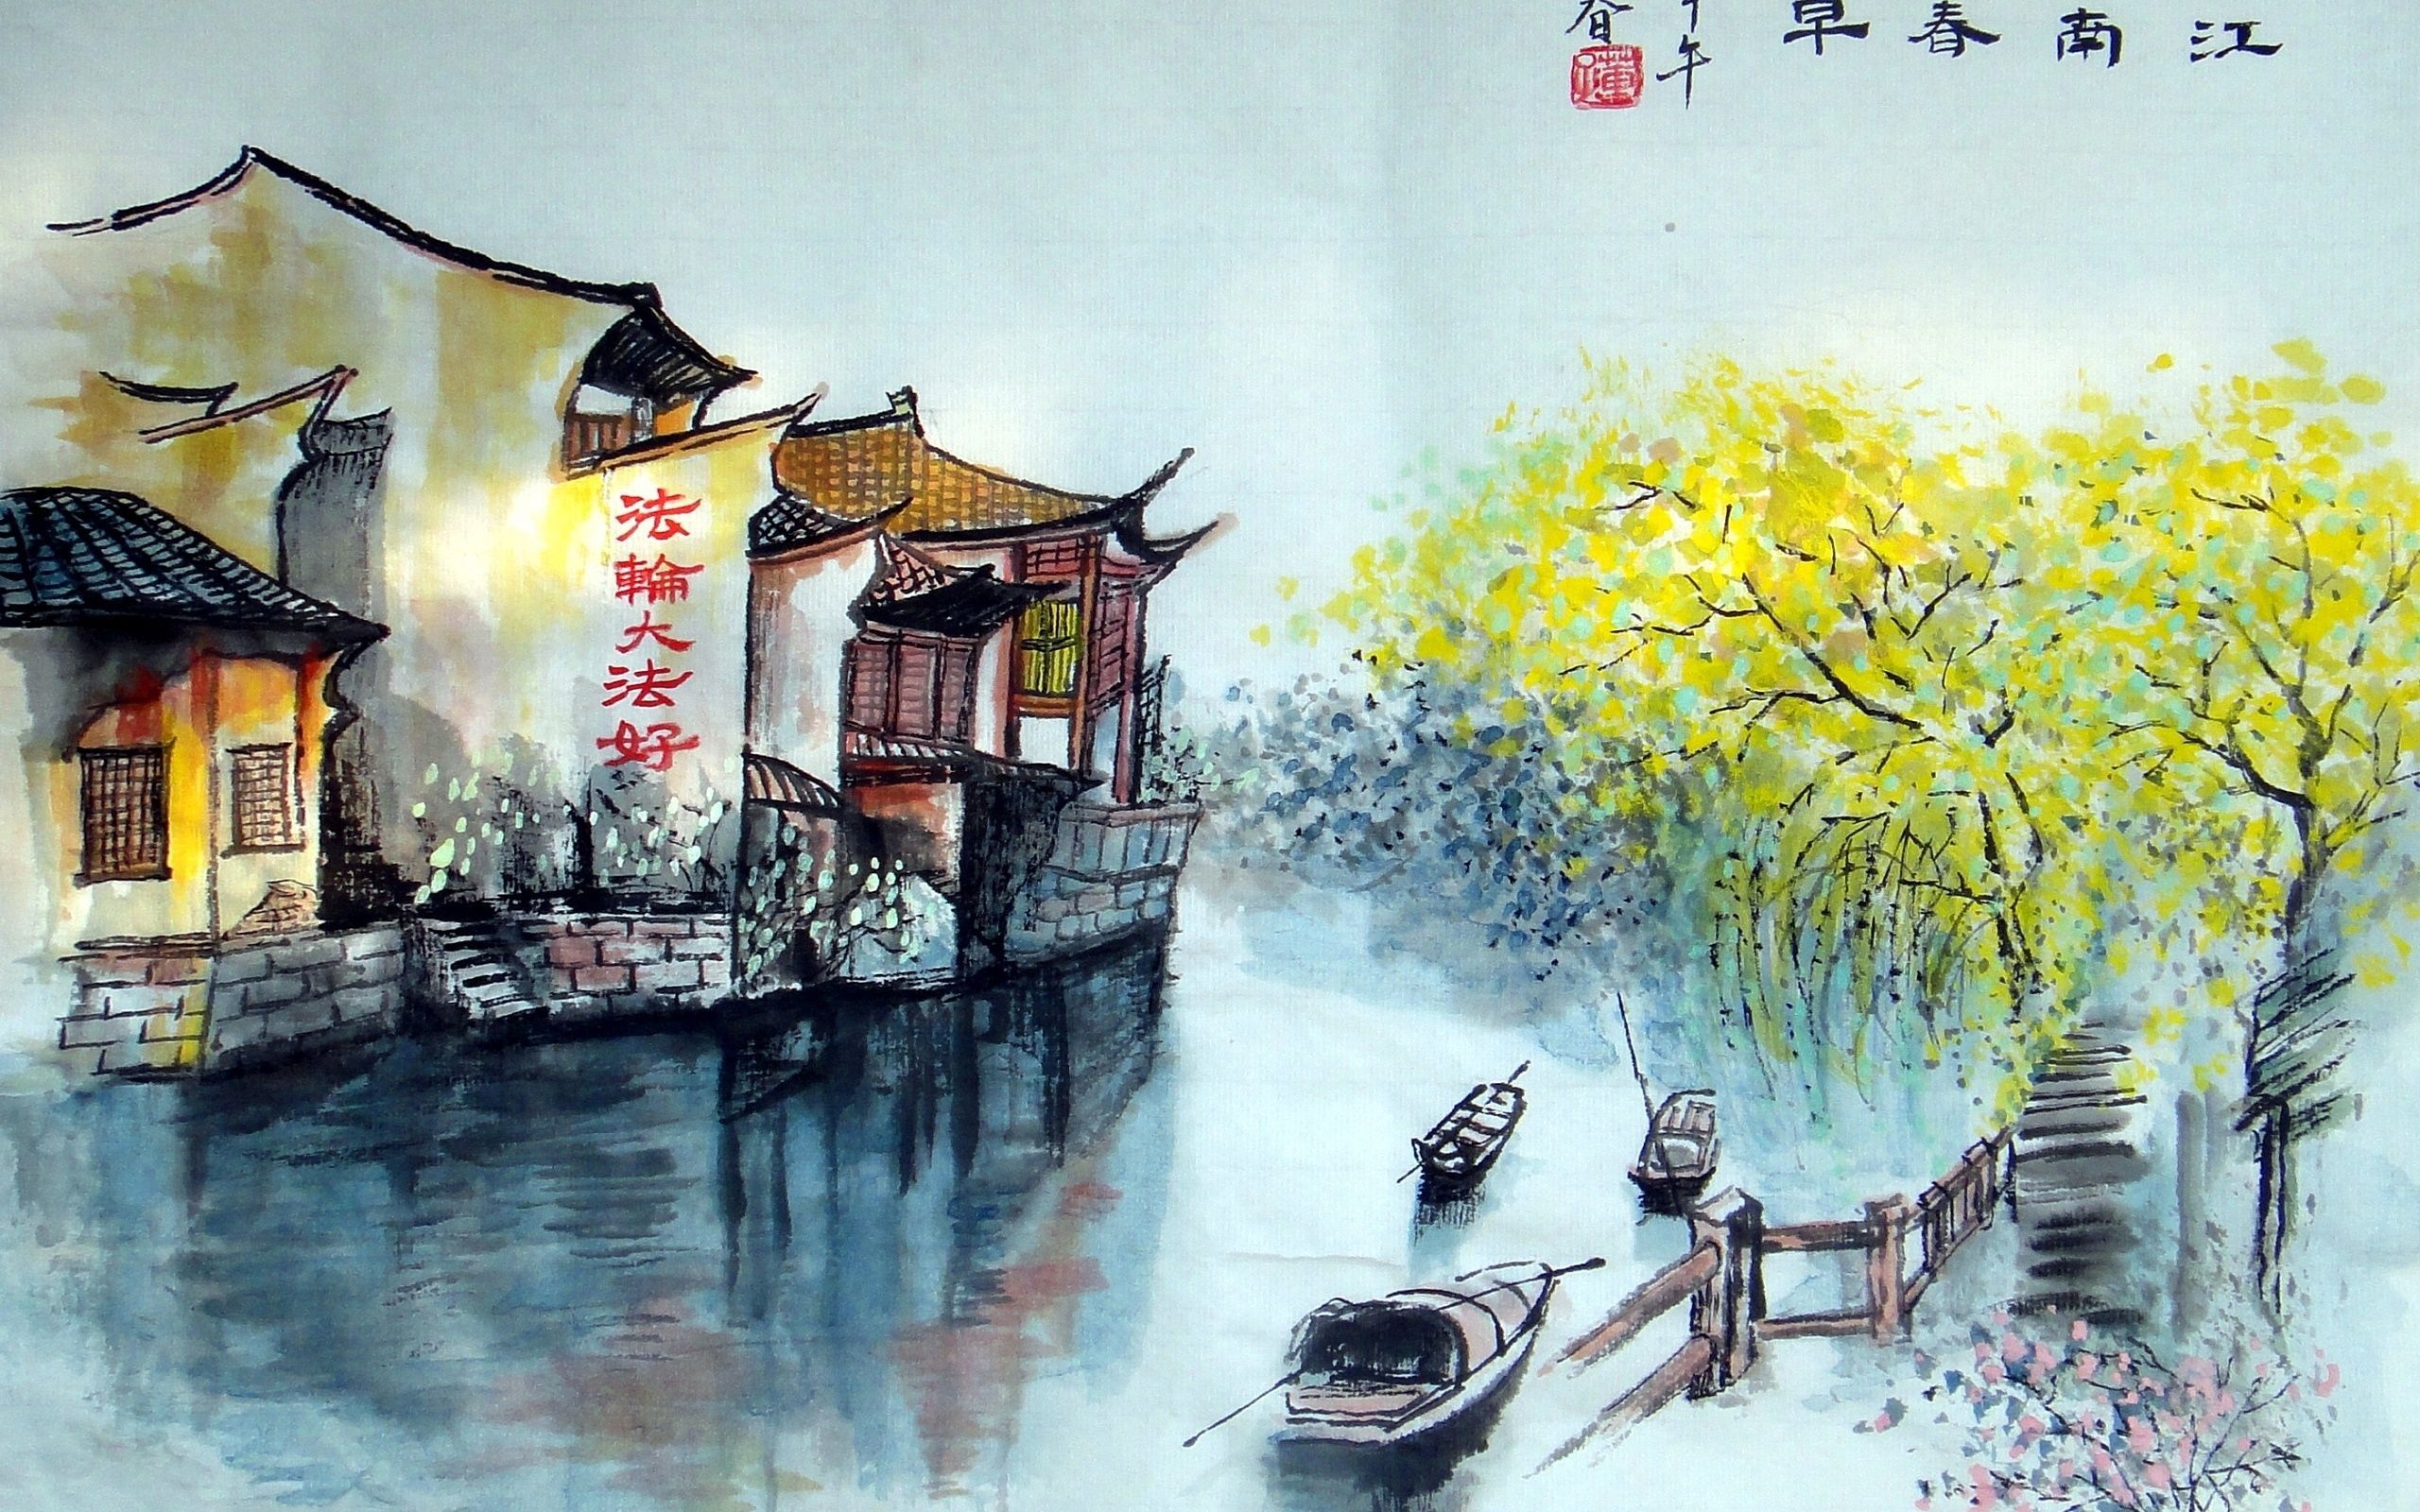 江南春早
午
春
蓮
法輪大法好